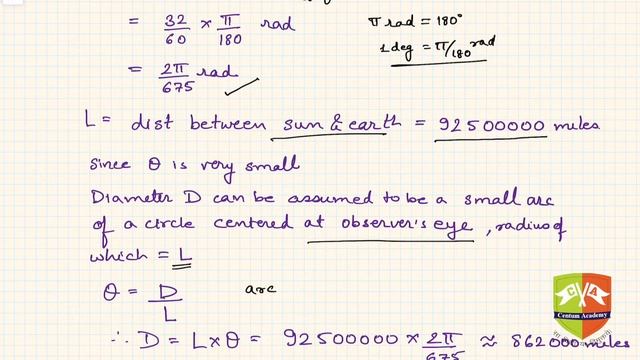 = 32/60 × π/180 rad
π rad = 180°
1 deg = π/180 rad
= 2π/675 rad
L = dist between sun & earth = 92500000 miles
Since θ is very small
Diameter D can be assumed to be a small arc
of a circle centered at observer's eye, radius of
which = L
θ = D/L
arc
∴ D = L×θ = 92500000 × 2π/675 ≈ 862000 miles
C A
Centum Academy